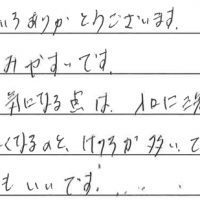 いろありがとうございます。
みやすいです。
気になる点は、入口に
くなるのと、けむりが多い
もいいです。